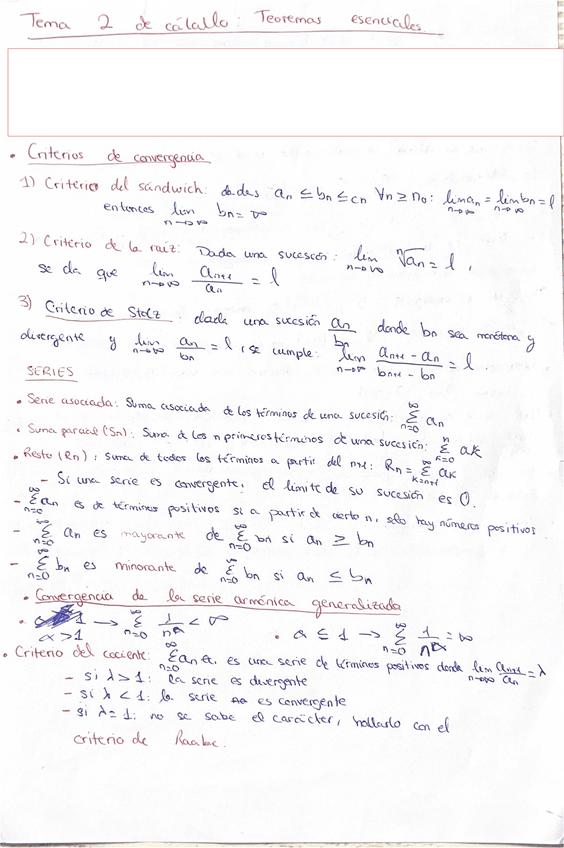 Tema 2 de cálculo: Teoremas esenciales.
• Criterios de convergencia
1) Criterio del sándwich: dadas an ≤ bn ≤ cn ∀n ≥ n0: lim n→∞ an = lim n→∞ bn = l
entonces lim n→∞ bn = ∞
2) Criterio de la raíz: Dada una sucesión: lim n→∞ ⁿ√an = l,
se da que lim n→∞ an+1/an = l
3) Criterio de Stolz: dada una sucesión an/bn donde bn sea monótona y
divergente y lim n→∞ an/bn = l, se cumple: lim n→∞ (an+1 - an)/(bn+1 - bn) = l.
SERIES
• Serie asociada: Suma asociada de los términos de una sucesión: ∞ Σ n=0 an
• Suma parcial (Sn): Suma de los n primeros términos de una sucesión: n Σ k=0 ak
• Resto (Rn): suma de todos los términos a partir del n+1: Rn = ∞ Σ k=n+1 ak
- Si una serie es convergente, el límite de su sucesión es 0.
- ∞ Σ n=0 an es de términos positivos si a partir de cierto n, sólo hay números positivos.
- ∞ Σ n=0 an es mayorante de ∞ Σ n=0 bn si an ≥ bn
- ∞ Σ n=0 bn es minorante de ∞ Σ n=0 bn si an ≤ bn
• Convergencia de la serie armónica generalizada
• α>1 → ∞ Σ n=0 1/nα < ∞ • α ≤ 1 → ∞ Σ n=0 1/nα = ∞
• Criterio del cociente: ∞ Σ n=0 an es una serie de términos positivos donde lim n→∞ an+1/an = λ
- si λ > 1: la serie es divergente
- si λ < 1: la serie es convergente
- si λ = 1: no se sabe el carácter, hallarlo con el
criterio de Raabe.